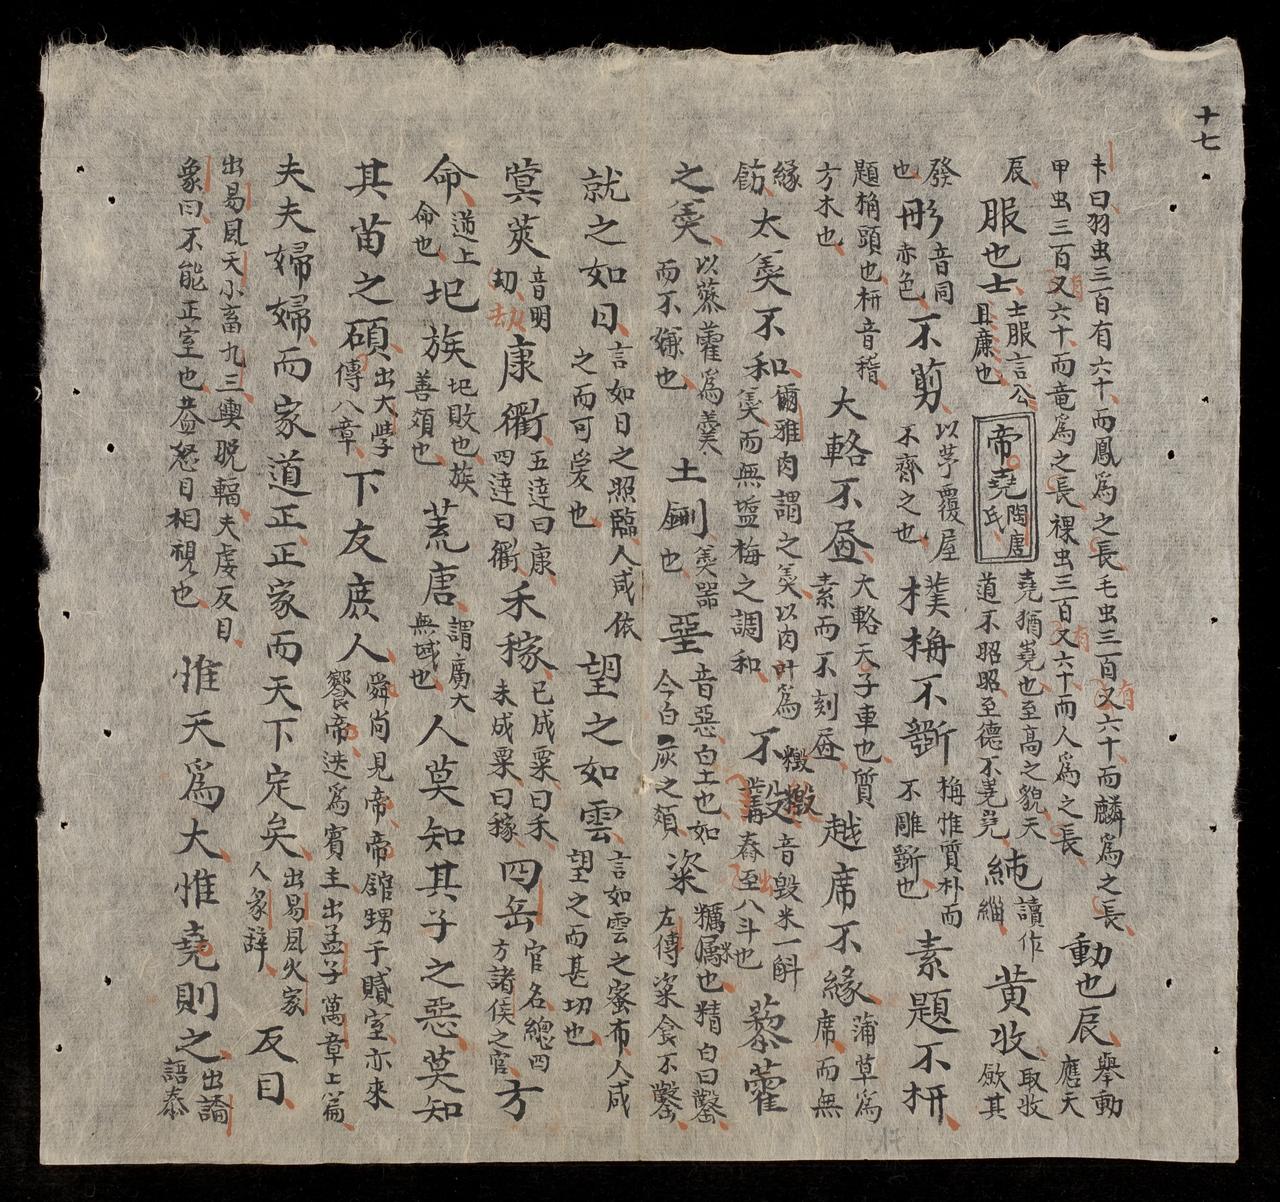 十七
卡曰羽虫三百有六十而鳳爲之長毛虫三百又六十而麟爲之長
甲虫三百又六十而竜爲之長裸虫三百又六十而人爲之長
動也辰
舉動
應天
辰
服也士
士服言公
且廉也
帝堯
陶唐
氏
堯猶嶤也至高之貌天
道不昭昭至德不嶤嶤
純
讀作
緇
黄收
取收
歛其
發
也
彤
音同
赤色
不剪
以茅覆屋
不齊之也
樸桷不斵
桷惟質朴而
不雕斵也
素題不枅
題桷頭也枅音稽
方木也
大輅不畫
大輅天子車也質
素而不刻畫
越席不緣
蒲草爲
席而無
緣
飾
太羹不和
爾雅肉謂之羹以肉汁爲
羹而無盬梅之調和
不毇
音毀米一斛
舂至八斗也
藜藿
之羹
以藜藿爲羹
而不嫌也
土鉶
羹器
也
堊
音惡白土也如
今白灰之類
粢
糲屬也精白曰鑿
左傳粢食不鑿
就之如日
言如日之照臨人咸依
之而可愛也
望之如雲
言如雲之蜜布人咸
望之而甚切也
蓂莢
音明
刧
康衢
五逹曰康
四逹曰衢
禾稼
已成粟曰禾
未成粟曰稼
四岳
官名總四
方諸侯之官
方
命
逆上
命也
圯族
圯敗也族
善類也
荒唐
謂廣大
無域也
人莫知其子之惡莫知
其苗之碩
出大學
傳八章
下友庶人
舜尚見帝帝舘甥于貳室亦來
饗帝迭爲賓主出孟子萬章上篇
夫夫婦婦而家道正正家而天下定矣
出易風火家
人彖辞
反目
出易風天小畜九三輿脫輻夫妻反目
象曰不能正室也葢怒目相視也
惟天爲大惟堯則之
出論
語泰